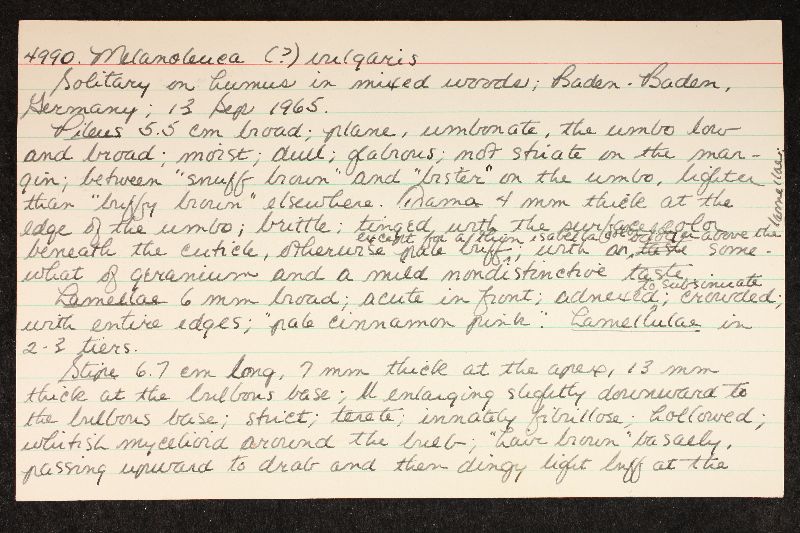 4990. Melanoleuca (?) vulgaris
Solitary on humus in mixed woods; Baden-Baden,
Germany; 13 Sep 1965.
Pileus 5.5 cm broad; plane, umbonate, the umbo low
and broad; moist; dull; glabrous; not striate on the mar-
gin; between "snuff brown" and "bister" on the umbo, lighter
than "buffy brown" elsewhere. Trama 4 mm thick at the
edge of the umbo; brittle; tinged with the surface color
except for a thin isabella colored layer above the lamellae;
beneath the cuticle, otherwise pale buff; with an some-
what of geranium and a mild nondistinctive taste.
to subsinuate
Lamellae 6 mm broad; acute in front; adnexed; crowded;
with entire edges; "pale cinnamon pink". Lamellulae in
2-3 tiers.
Stipe 6.7 cm long, 7 mm thick at the apex, 13 mm
thick at the bulbous base; enlarging slightly downward to
the bulbous base; strict; terete; innately fibrillose; hollowed;
whitish mycelioid around the bulb; "hair brown" basally,
passing upward to drab and then dingy light buff at the